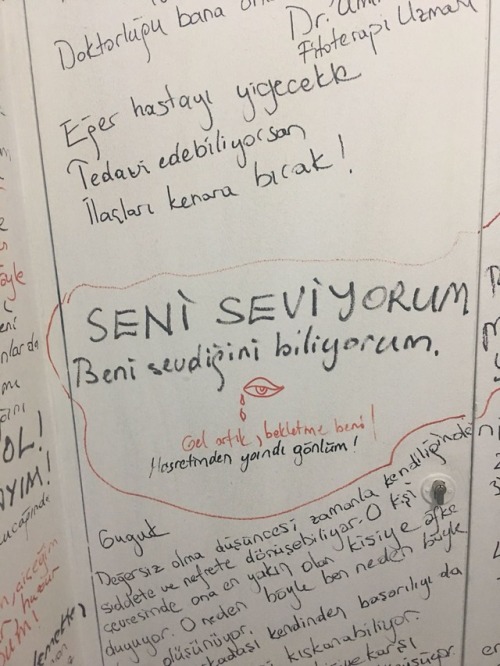 Doktorluğu bana
Dr. Ümit
Fitoterapi Uzmanı
Eğer hastayı yiyecekle
Tedavi edebiliyorsan
İlaçları kenara bırak!
SENİ SEVİYORUM
Beni sevdiğini biliyorum.
Gel artık, bekletme beni!
Hasretinden yandı gönlüm!
Guguk
Değersiz olma düşüncesi zamanla kendiliğinden
şiddete ve nefrete dönüşebiliyor. O kişi
çevresinde ona en yakın olan kişiye öfke
duyuyor. O neden böyle ben neden böyle
düşünüyor.
kendinden başarılıyı da
kıskanabiliyor.
karşı
OL!
YIM!